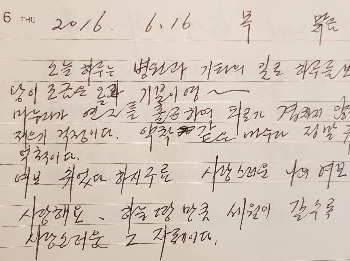 6 THU 2016. 6. 16 목 맑음
오늘 하루는 병원과 기타의 일로 하루를 보
당이 조금은 올라 기분이 영~
마누라가 연 를 물 하여 피로가 겹치지 않
지 걱정이다. 약착 같은 마누라 정말
억척이다.
여보 취었다 하지구료 사랑스러운 나의 여보
사랑해요. 하늘 땅 만큼 세월이 갈수록
사랑스러움 그 자체이다.